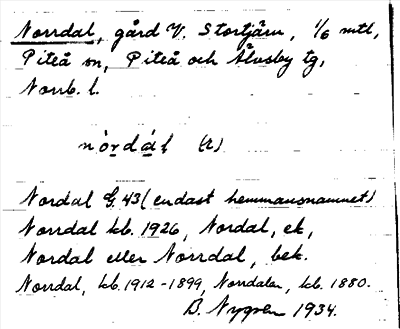 Norrdal, gård V. Stortjärn, 1/6 mtl,
Piteå sn, Piteå och Älvsby tg,
Norrb. l.
nò̱rdál (t)
Nordal G. 43 (endast hemmansnamnet)
Norrdal kb. 1926, Nordal, ek,
Nordal eller Norrdal, bek.
Norrdal, kb. 1912-1899, Norrdalen, kb. 1880.
B. Nygren 1934.